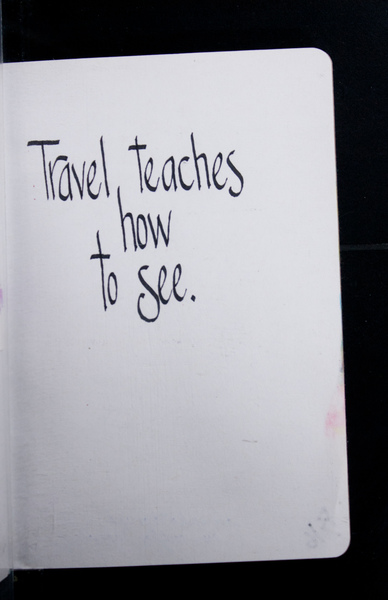 Travel teaches
how
to see.